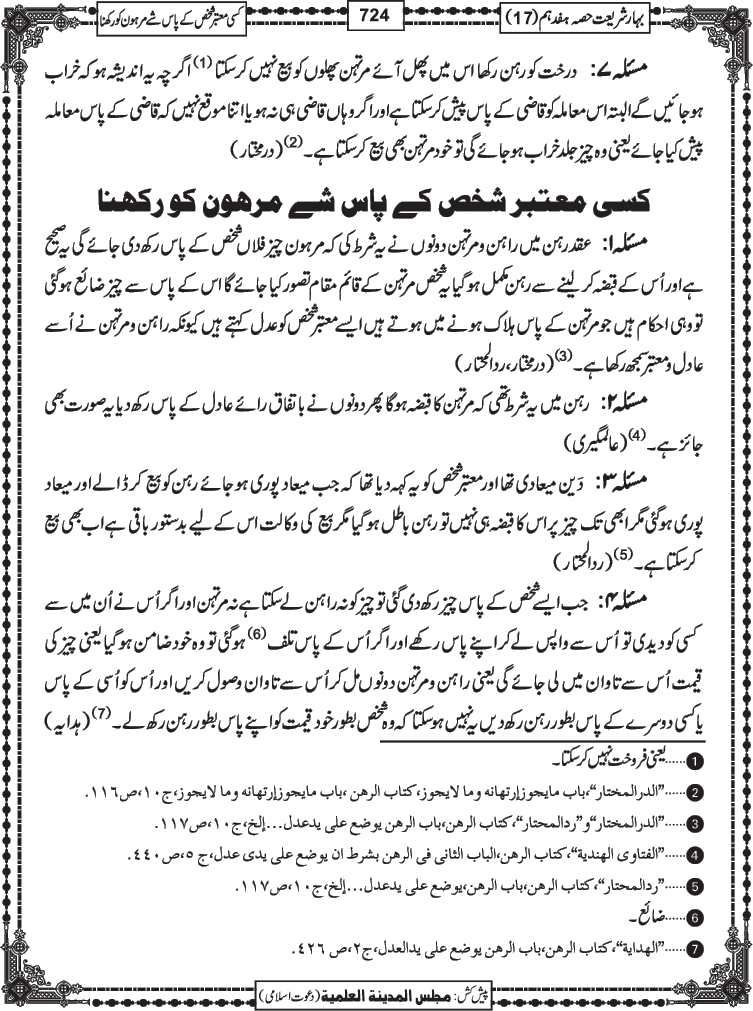 بہارِ شریعت حصہ ہفدہم (17)
724
کسی معتبر شخص کے پاس شے مرہون کو رکھنا
مسئلہ ۷: درخت کو رہن رکھا اس میں پھل آئے مرتہن پھلوں کو بیع نہیں کرسکتا(1) اگرچہ یہ اندیشہ ہو کہ خراب
ہوجائیں گے البتہ اس معاملہ کو قاضی کے پاس پیش کرسکتا ہے اور اگر وہاں قاضی ہی نہ ہو یا اتنا موقع نہیں کہ قاضی کے پاس معاملہ
پیش کیا جائے یعنی وہ چیز جلد خراب ہوجائے گی تو خود مرتہن بھی بیع کرسکتا ہے۔(2) (درمختار)
کسی معتبر شخص کے پاس شے مرھون کو رکھنا
مسئلہ ۱: عقد رہن میں راہن و مرتہن دونوں نے یہ شرط کی کہ مرہون چیز فلاں شخص کے پاس رکھ دی جائے گی یہ صحیح
ہے اور اُس کے قبضہ کرلینے سے رہن مکمل ہوگیا یہ شخص مرتہن کے قائم مقام تصور کیا جائے گا اس کے پاس سے چیز ضائع ہوگئی
تو وہی احکام ہیں جو مرتہن کے پاس ہلاک ہونے میں ہوتے ہیں ایسے معتبر شخص کو عدل کہتے ہیں کیونکہ راہن و مرتہن نے اُسے
عادل و معتبر سمجھ رکھا ہے۔(3) (درمختار، ردالمحتار)
مسئلہ ۲: رہن میں یہ شرط تھی کہ مرتہن کا قبضہ ہوگا پھر دونوں نے باتفاق رائے عادل کے پاس رکھ دیا یہ صورت بھی
جائز ہے۔(4) (عالمگیری)
مسئلہ ۳: دَین میعادی تھا اور معتبر شخص کو یہ کہہ دیا تھا کہ جب میعاد پوری ہوجائے رہن کو بیع کر ڈالے اور میعاد
پوری ہوگئی مگر ابھی تک چیز پر اس کا قبضہ ہی نہیں تو رہن باطل ہوگیا مگر بیع کی وکالت اس کے لیے بدستور باقی ہے اب بھی بیع
کرسکتا ہے۔(5) (ردالمحتار)
مسئلہ ۴: جب ایسے شخص کے پاس چیز رکھ دی گئی تو چیز کو نہ راہن لے سکتا ہے نہ مرتہن اور اگر اُس نے اُن میں سے
کسی کو دیدی تو اُس سے واپس لے کر اپنے پاس رکھے اور اگر اُس کے پاس تلف(6) ہوگئی تو وہ خود ضامن ہوگیا یعنی چیز کی
قیمت اُس سے تاوان میں لی جائے گی یعنی راہن و مرتہن دونوں مل کر اُس سے تاوان وصول کریں اور اُس کو اُسی کے پاس
یا کسی دوسرے کے پاس بطور رہن رکھ دیں یہ نہیں ہوسکتا کہ وہ شخص بطور خود قیمت کو اپنے پاس بطور رہن رکھ لے۔(7) (ہدایہ)
1 ......یعنی فروخت نہیں کرسکتا۔
2 ......"الدرالمختار"، باب مایجوز إرتهانه وما لایجوز، کتاب الرهن ،باب مایجوز إرتهانه وما لایجوز، ج۱۰، ص۱۱۶.
3 ......"الدرالمختار" و "ردالمحتار"، کتاب الرهن، باب الرهن یوضع علی یدعدل...إلخ، ج۱۰، ص۱۱۷.
4 ......"الفتاوی الهندیة"، کتاب الرهن، الباب الثانی فی الرهن بشرط ان یوضع علی یدی عدل، ج ۵، ص۴۴۰.
5 ......"ردالمحتار"، کتاب الرهن، باب الرهن، یوضع علی یدعدل...إلخ، ج۱۰، ص۱۱۷.
6 ......ضائع۔
7 ......"الهدایة"، کتاب الرهن، باب الرهن یوضع علی یدالعدل، ج۲، ص ۴۲۶.
پیش کش: مجلس المدینة العلمیة (دعوت اسلامی)